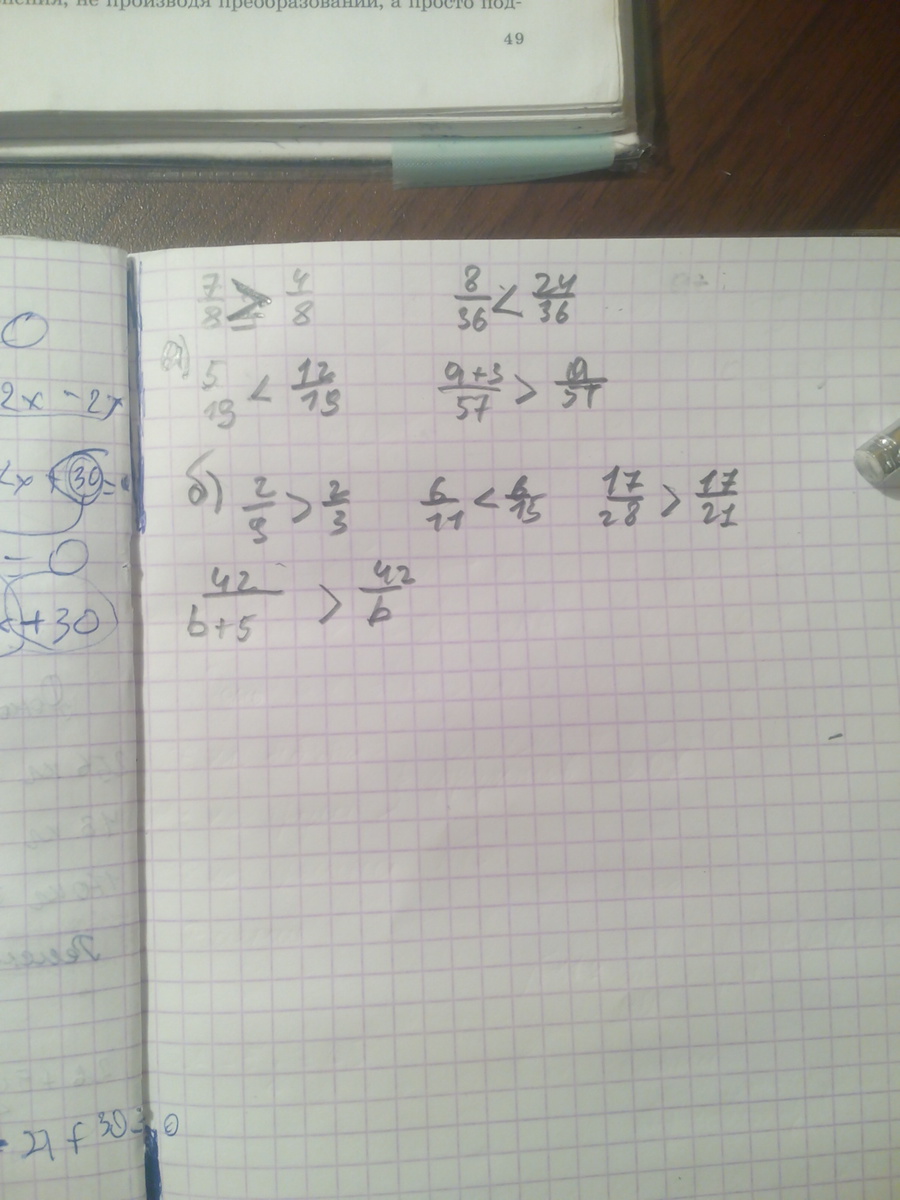 жения, не производя преобразований, а просто под-
49
7/8 > 4/8 8/36 < 24/36
а) 5/19 < 12/19 a+3/57 > a/57
б) 2/9 > 2/3 6/11 < 6/15 17/28 > 17/21
42/b+5 > 42/b
0
2x - 2x
2x + 30 =
= 0
+30
- 21 + 30 = 0